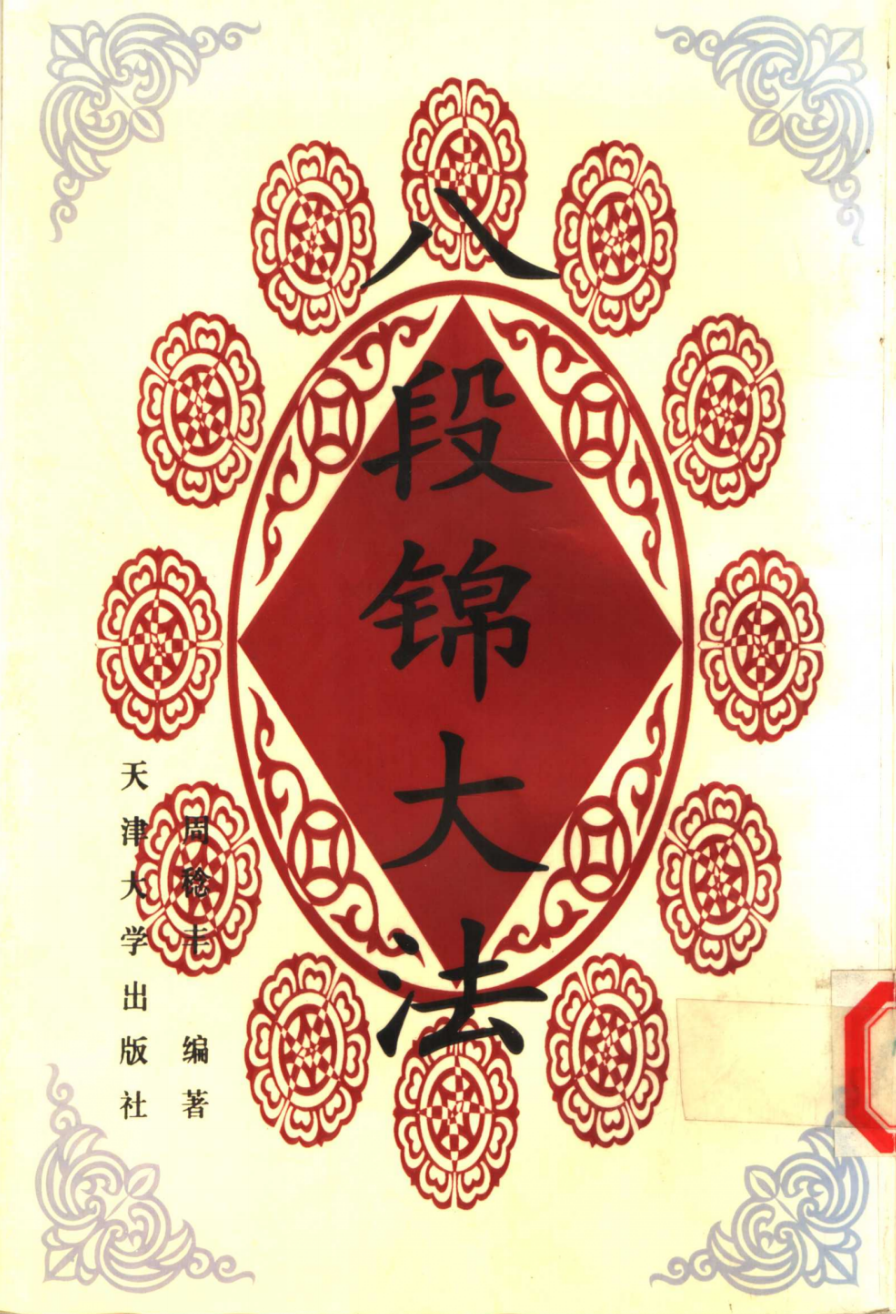 八段锦大法
周稔丰 编著
天津大学出版社